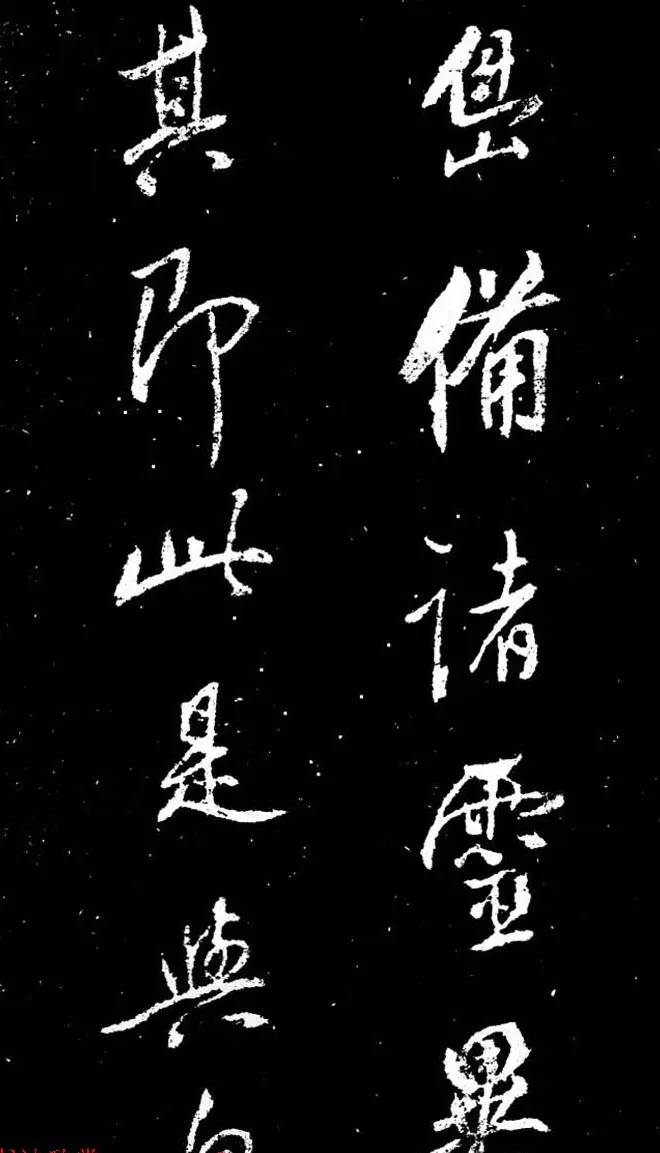 島備諸靈異
其即此是與